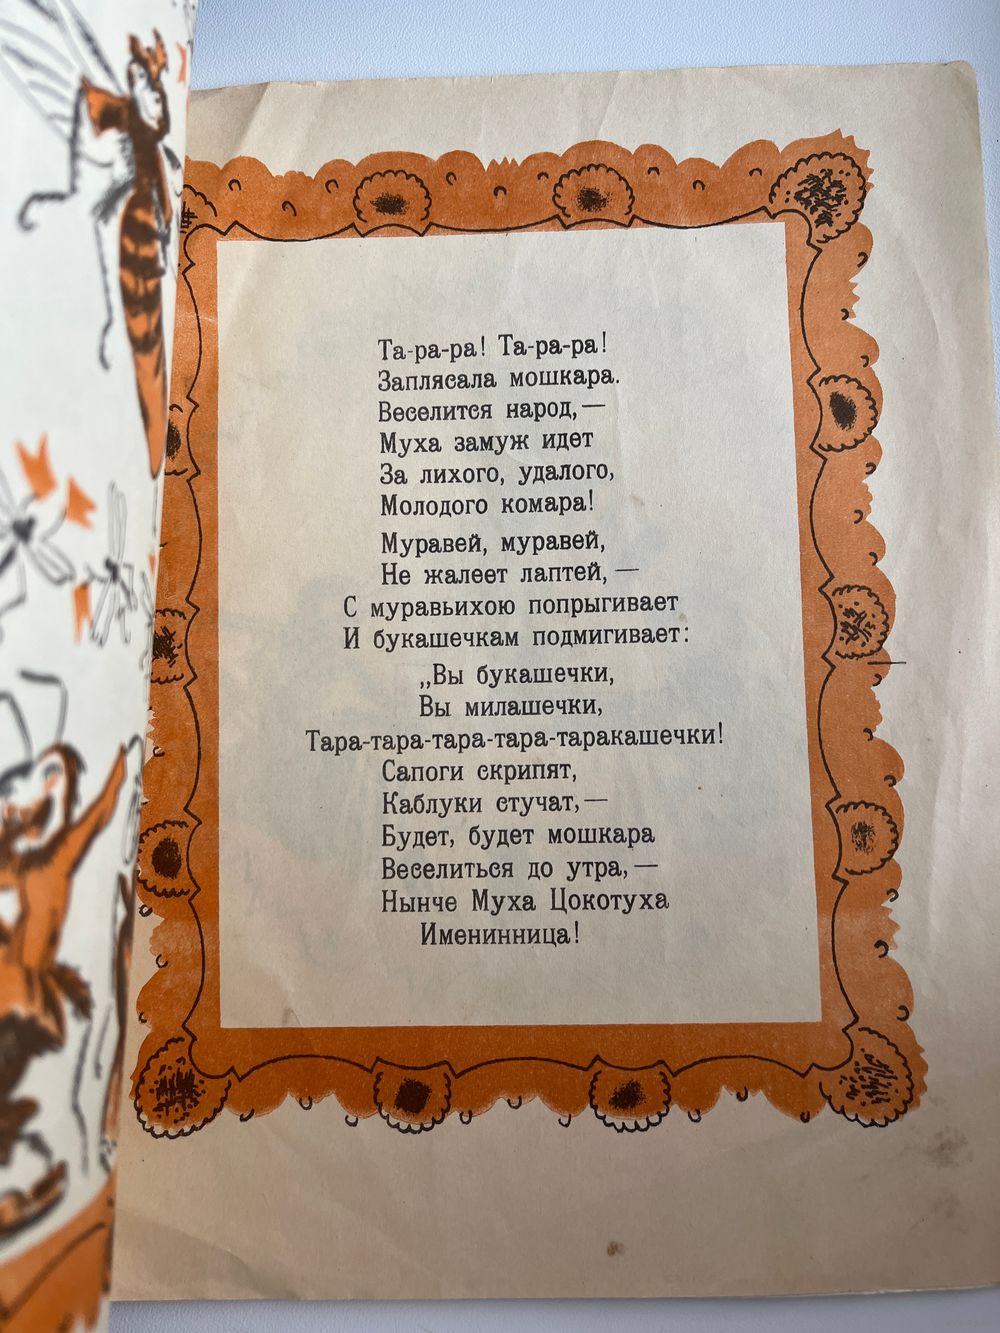 Та-ра-ра! Та-ра-ра!
Заплясала мошкара.
Веселится народ,—
Муха замуж идет
За лихого, удалого,
Молодого комара!
Муравей, муравей,
Не жалеет лаптей,—
С муравьихою попрыгивает
И букашечкам подмигивает:
„Вы букашечки,
Вы милашечки,
Тара-тара-тара-тара-таракашечки!
Сапоги скрипят,
Каблуки стучат,—
Будет, будет мошкара
Веселиться до утра,—
Нынче Муха Цокотуха
Именинница!